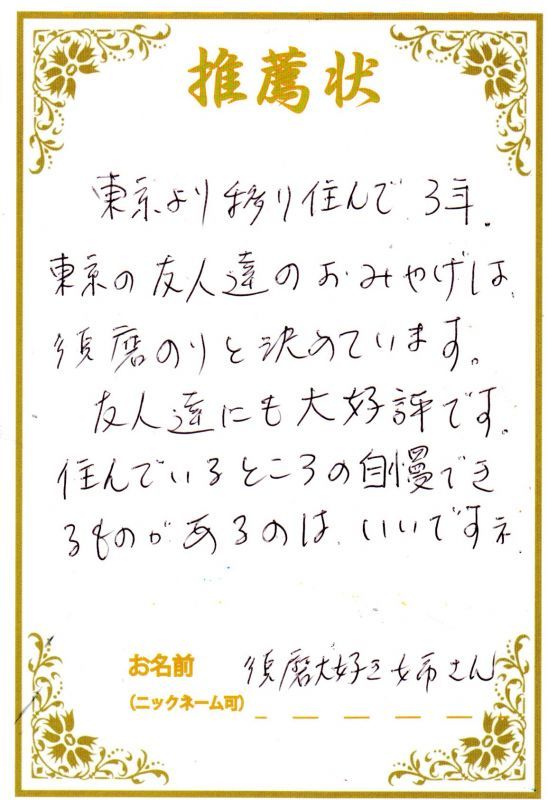 推薦状
東京より移り住んで、3年。
東京の友人達のおみやげは、
須磨のりと決めています。
友人達にも大好評です。
住んでいるところの自慢でき
るものがあるのは、いいですネ。
お名前 須磨大好き姉さん
(ニックネーム可)